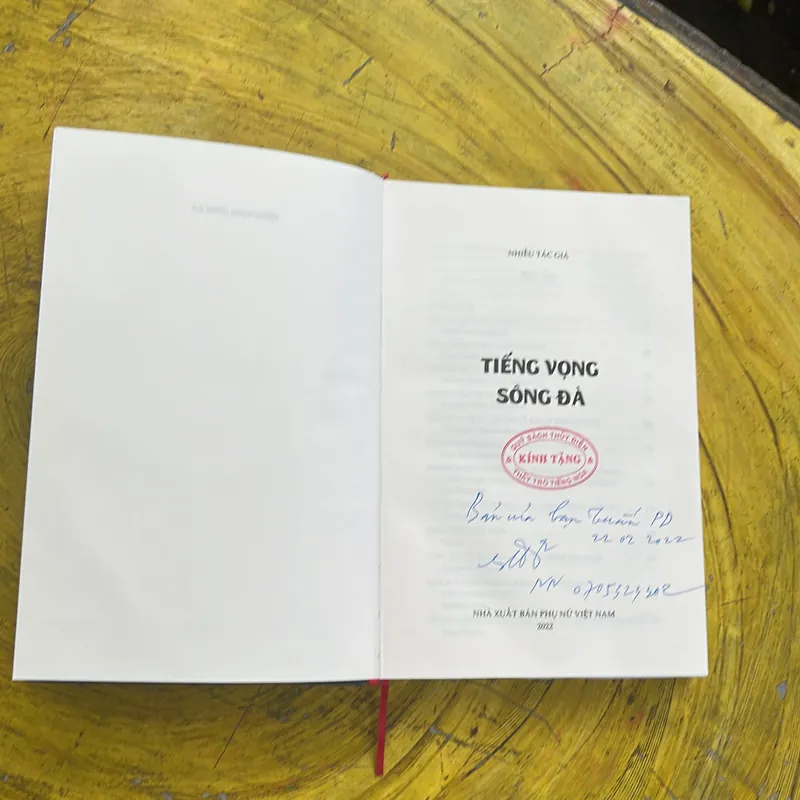 NHIỀU TÁC GIẢ
TIẾNG VỌNG
SÔNG ĐÀ
QUỸ SÁCH THỦY ĐIỆN
KÍNH TẶNG
THẦY TRÒ TIẾNG NGA
bạn Tuấn PD
22 02 2022
NN
NHÀ XUẤT BẢN PHỤ NỮ VIỆT NAM
2022